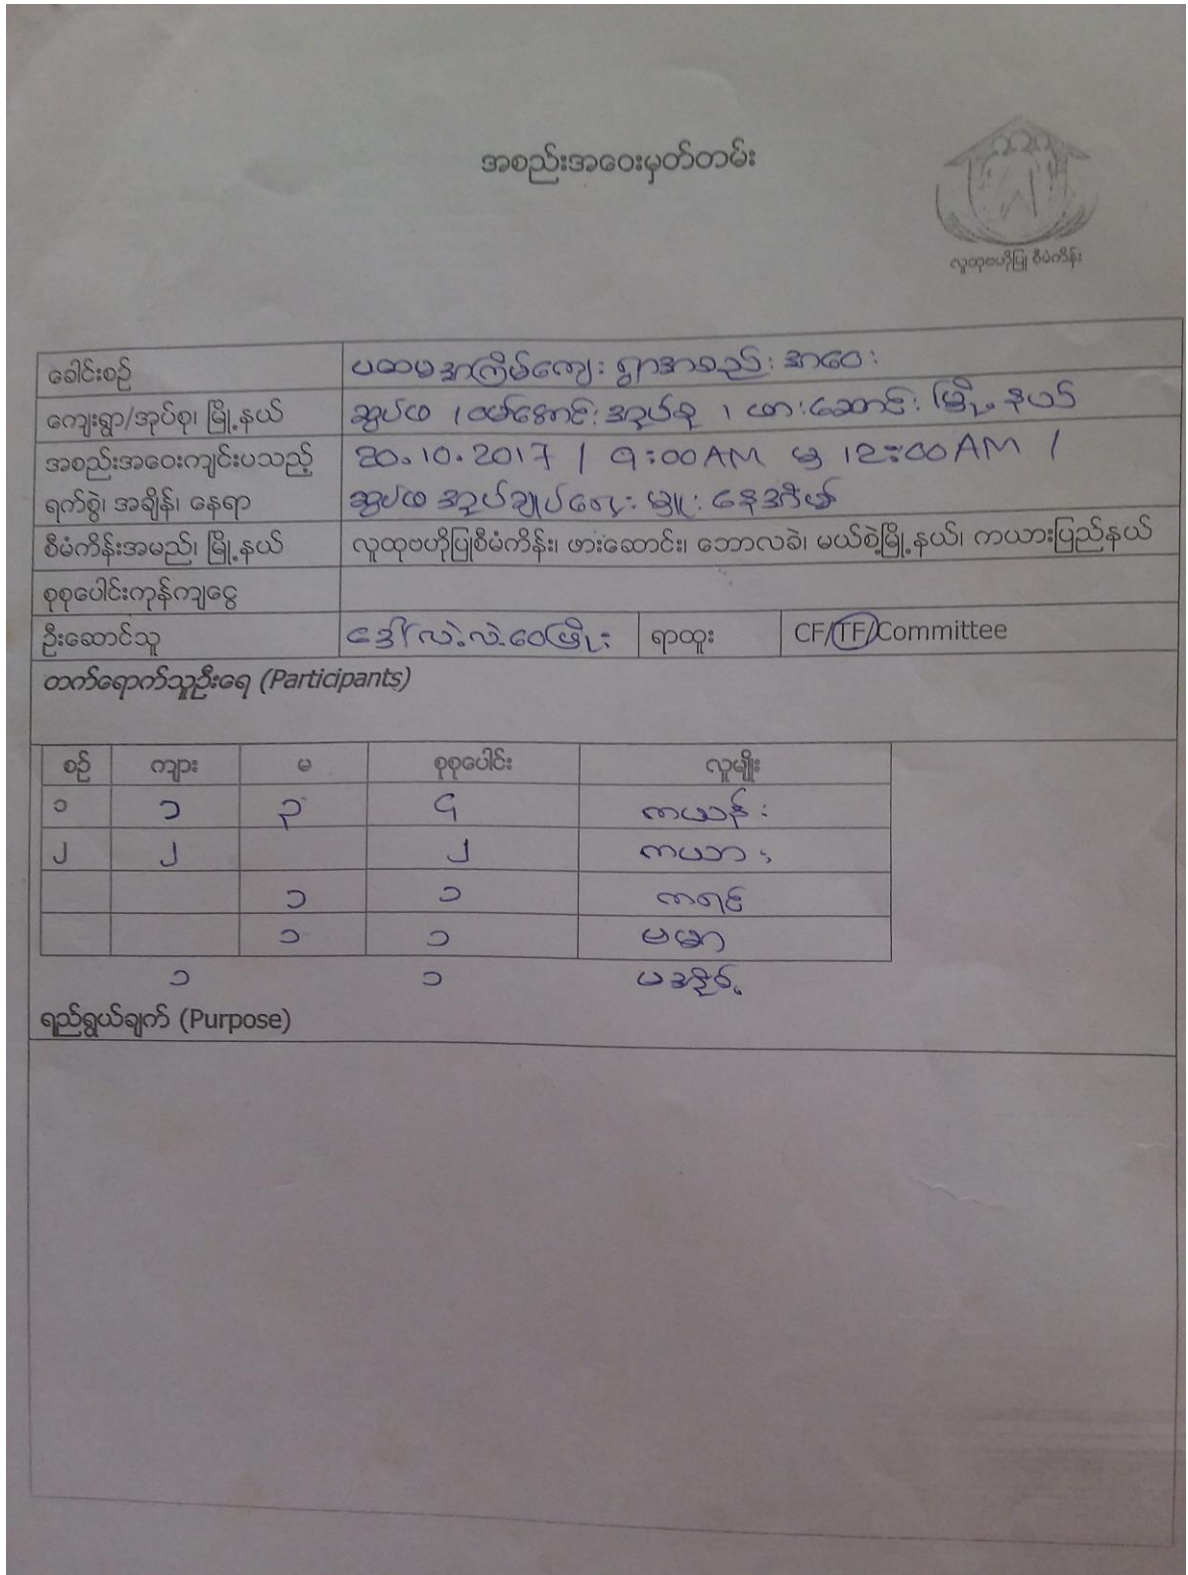 အစည်းအဝေးမှတ်တမ်း
လူထုဗဟိုပြု စီမံကိန်း
ခေါင်းစဉ် ပထမအကြိမ်ကျေးရွာအစည်းအဝေး
ကျေးရွာ/အုပ်စု၊ မြို့နယ် ဆွပ်ဖ ၊ ဝမ်အောင်းအုပ်စု ၊ ဖားဆောင်းမြို့နယ်
အစည်းအဝေးကျင်းပသည့် 20.10.2017 / 9:00AM မှ 12:00AM /
ရက်စွဲ၊ အချိန်၊ နေရာ ဆွပ်ဖ အုပ်ချုပ်ရေးမှူးနေအိမ်
စီမံကိန်းအမည်၊ မြို့နယ် လူထုဗဟိုပြုစီမံကိန်း၊ ဖားဆောင်း၊ ဘောလခဲ၊ မယ်စဲ့မြို့နယ်၊ ကယားပြည်နယ်
စုစုပေါင်းကုန်ကျငွေ
ဦးဆောင်သူ ဒေါ်လဲ့လဲ့ဝေဖြိုး ရာထူး CF/TF/Committee
တက်ရောက်သူဦးရေ (Participants)
စဉ် ကျား မ စုစုပေါင်း လူမျိုး
၁ ၁ ၃ ၄ ကယန်း
၂ ၂ ၂ ကယား
၁ ၁ ကရင်
၁ ၁ ဗမာ
၁ ၁ ပအိုဝ့်
ရည်ရွယ်ချက် (Purpose)